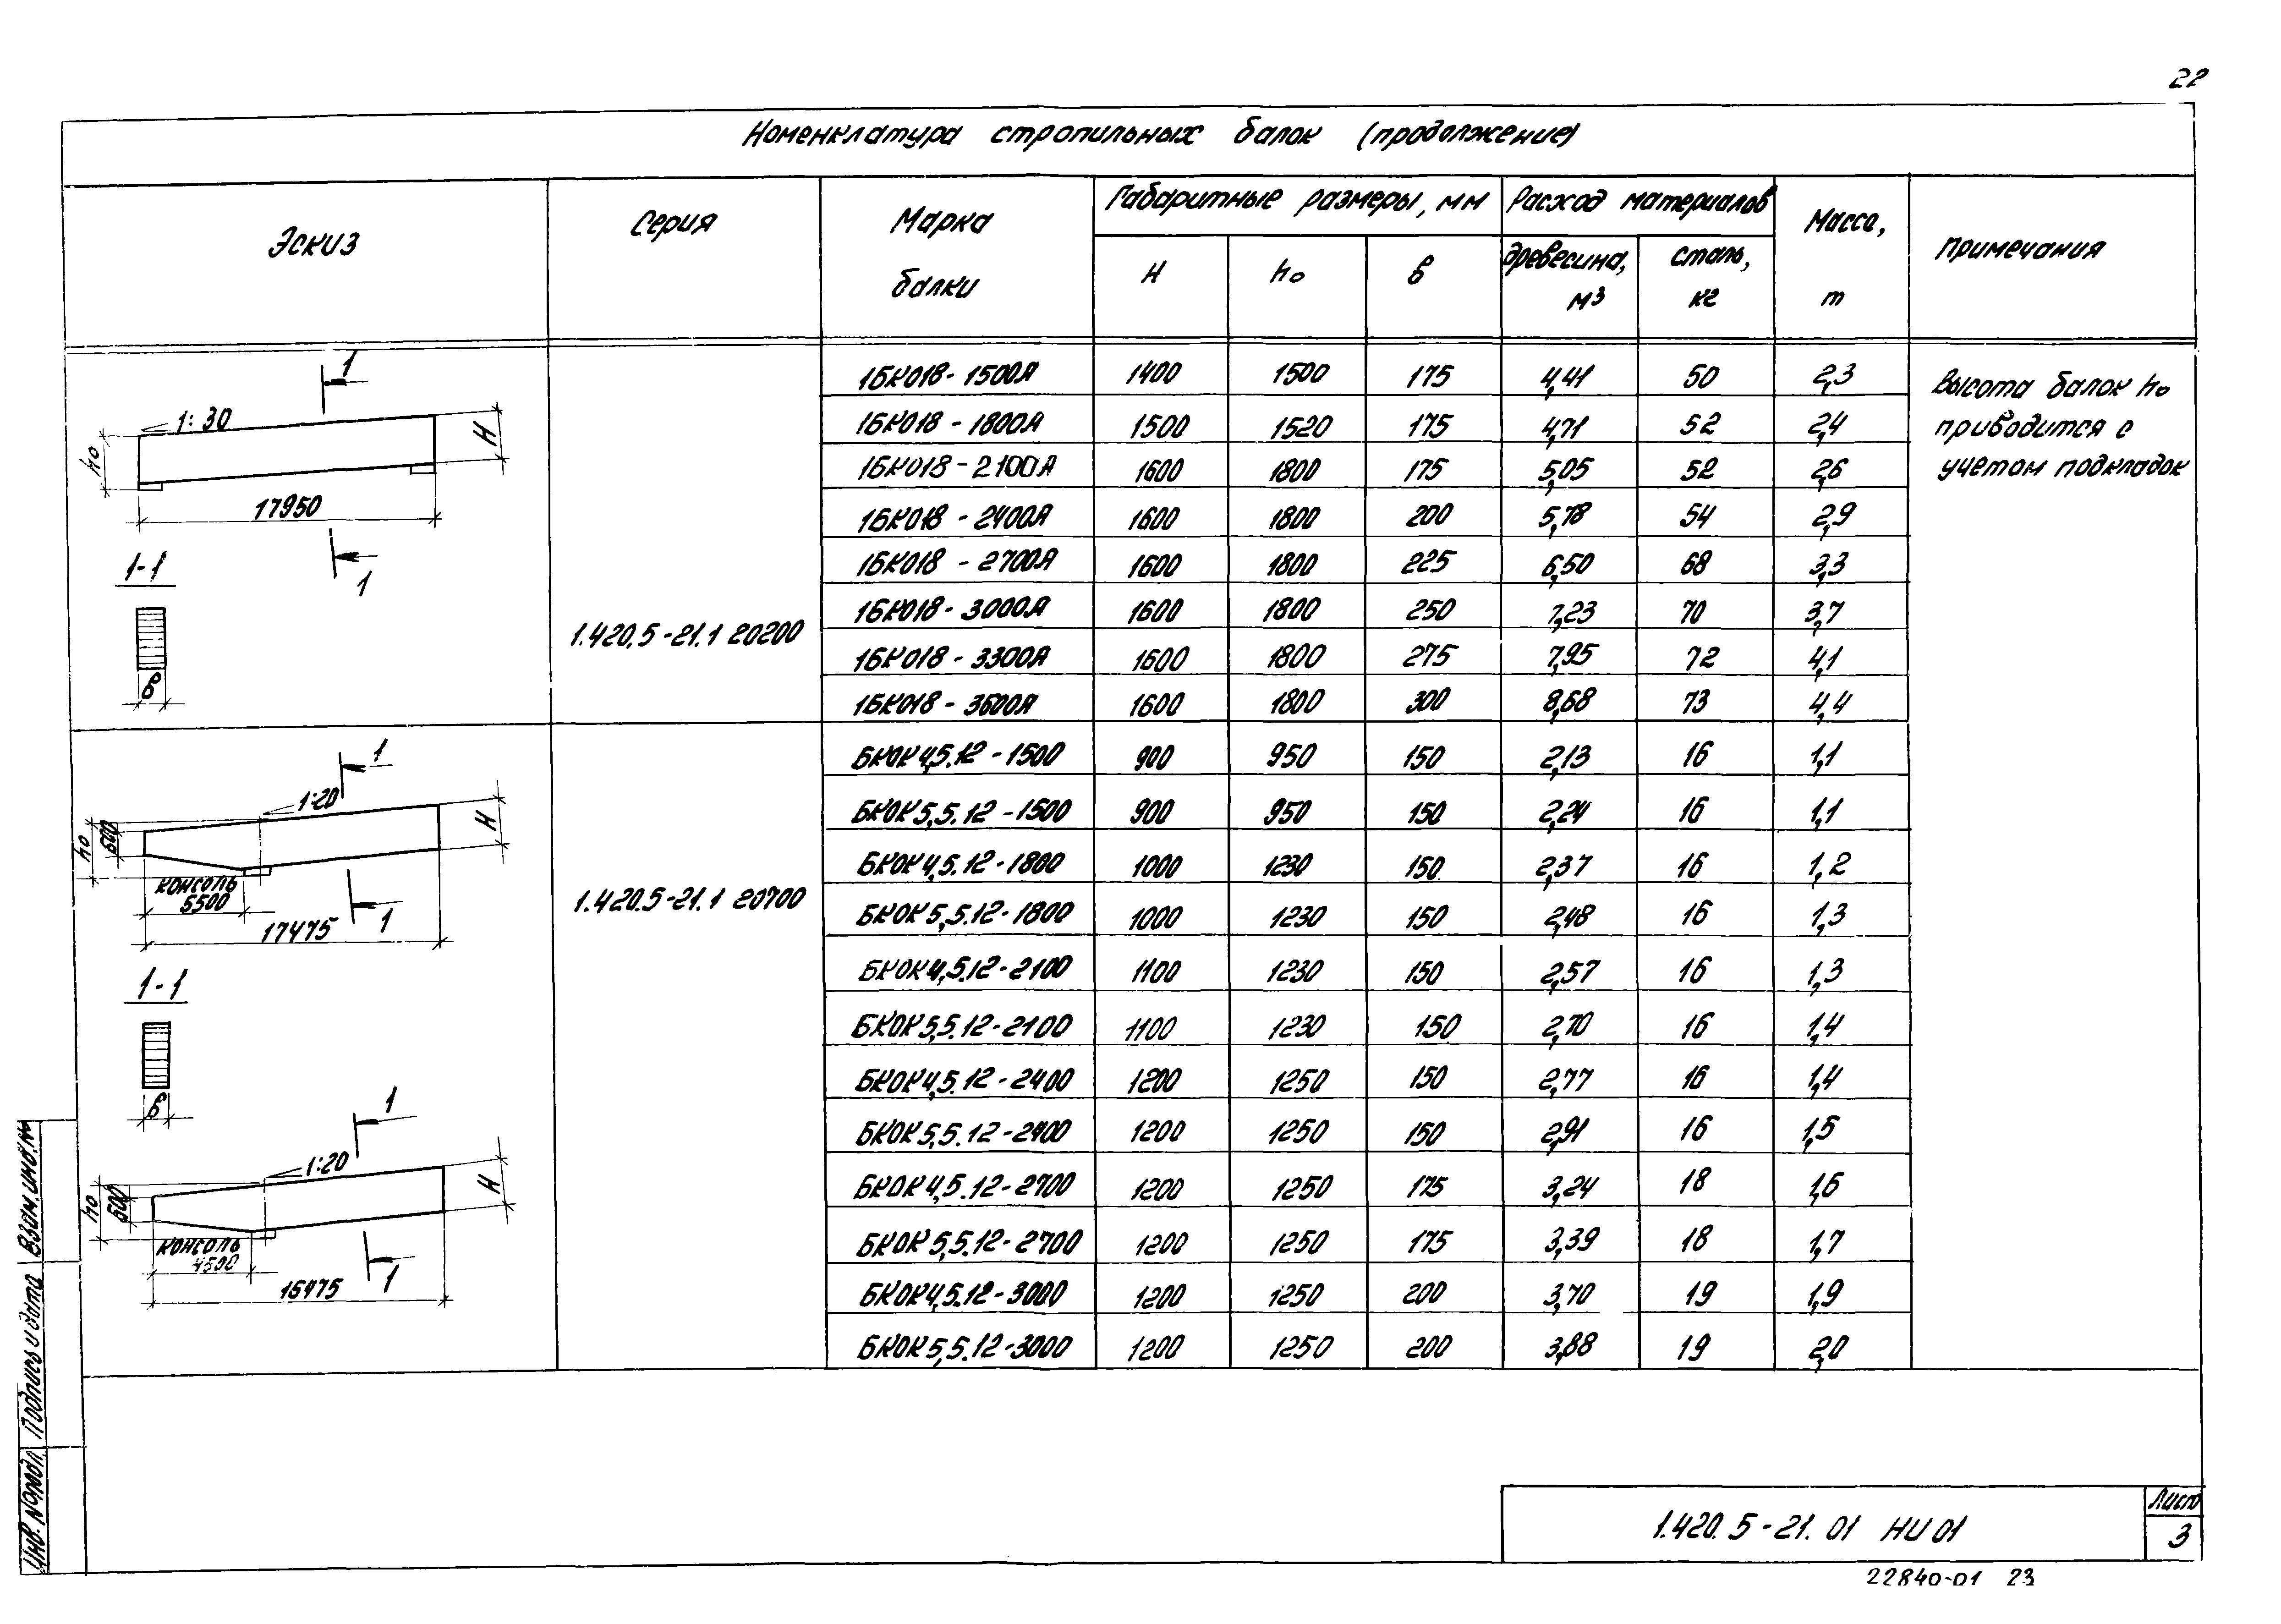 22
Номенклатура стропильных балок (продолжение)
Эскиз Серия Марка балки Габаритные размеры, мм Расход материалов Масса, т Примечания
H h₀ в древесина, м³ сталь, кг
1БКО18-1500А 1400 1500 175 4,41 50 2,3
1БКО18-1800А 1500 1520 175 4,71 52 2,4
1БКО18-2100А 1600 1800 175 5,05 52 2,6
1БКО18-2400А 1600 1800 200 5,78 54 2,9
1БКО18-2700А 1600 1800 225 6,50 68 3,3
1БКО18-3000А 1600 1800 250 7,23 70 3,7
1БКО18-3300А 1600 1800 275 7,95 72 4,1
1БКО18-3600А 1600 1800 300 8,68 73 4,4
1.420.5-21.1 20200
Высота балок h₀
приводится с
учетом подкладок
1
1:30
H
h₀
17950
1
1-1
в
БКОК4,5.12-1500 900 950 150 2,13 16 1,1
БКОК5,5.12-1500 900 950 150 2,24 16 1,1
БКОК4,5.12-1800 1000 1230 150 2,37 16 1,2
БКОК5,5.12-1800 1000 1230 150 2,48 16 1,3
БКОК4,5.12-2100 1100 1230 150 2,57 16 1,3
БКОК5,5.12-2100 1100 1230 150 2,70 16 1,4
БКОК4,5.12-2400 1200 1250 150 2,77 16 1,4
БКОК5,5.12-2400 1200 1250 150 2,91 16 1,5
БКОК4,5.12-2700 1200 1250 175 3,24 18 1,6
БКОК5,5.12-2700 1200 1250 175 3,39 18 1,7
БКОК4,5.12-3000 1200 1250 200 3,70 19 1,9
БКОК5,5.12-3000 1200 1250 200 3,88 19 2,0
1.420.5-21.1 20700
1
1:20
H
h₀
600
консоль
5500
17475
1
1-1
в
1
1:20
H
h₀
600
консоль
4500
16475
1
Инв. № подл. Подпись и дата Взам. инв. №
1.420.5-21.01 НИ01
Лист
3
22840-01 23